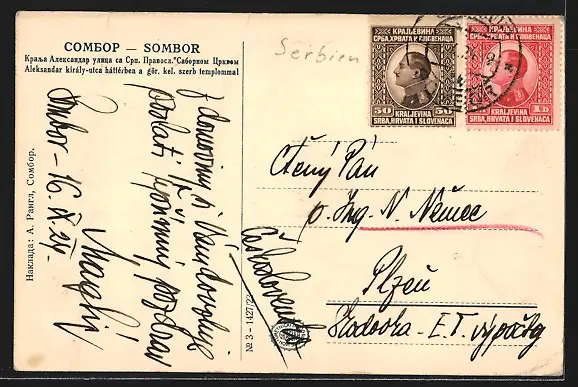 СОМБОР — SOMBOR
Краља Александар улица са Срп. Правосл. "Саборном Црквом
Aleksandar király-utca háttérben a gör. kel. szerb templommal
Serbien
КРАЉЕВИНА
СРБА, ХРВАТА И СЛОВЕНАЦА
50 50
KRALJEVINA
SRBA, HRVATA I SLOVENACA
КРАЉЕВИНА
СРБА, ХРВАТА И СЛОВЕНАЦА
1 D
KRALJEVINA
SRBA, HRVATA I SLOVENACA
Z domoviny si Vám dovoluji
poslati
upřímný pozdrav
Sombor - 16.
Ctěný Pán
p. Ing. V. Němec
Plzeň
Škodovka - E. T. výpočty
Československo
Наклада: А. Рангл, Сомбор.
№ 3 – 1427/23